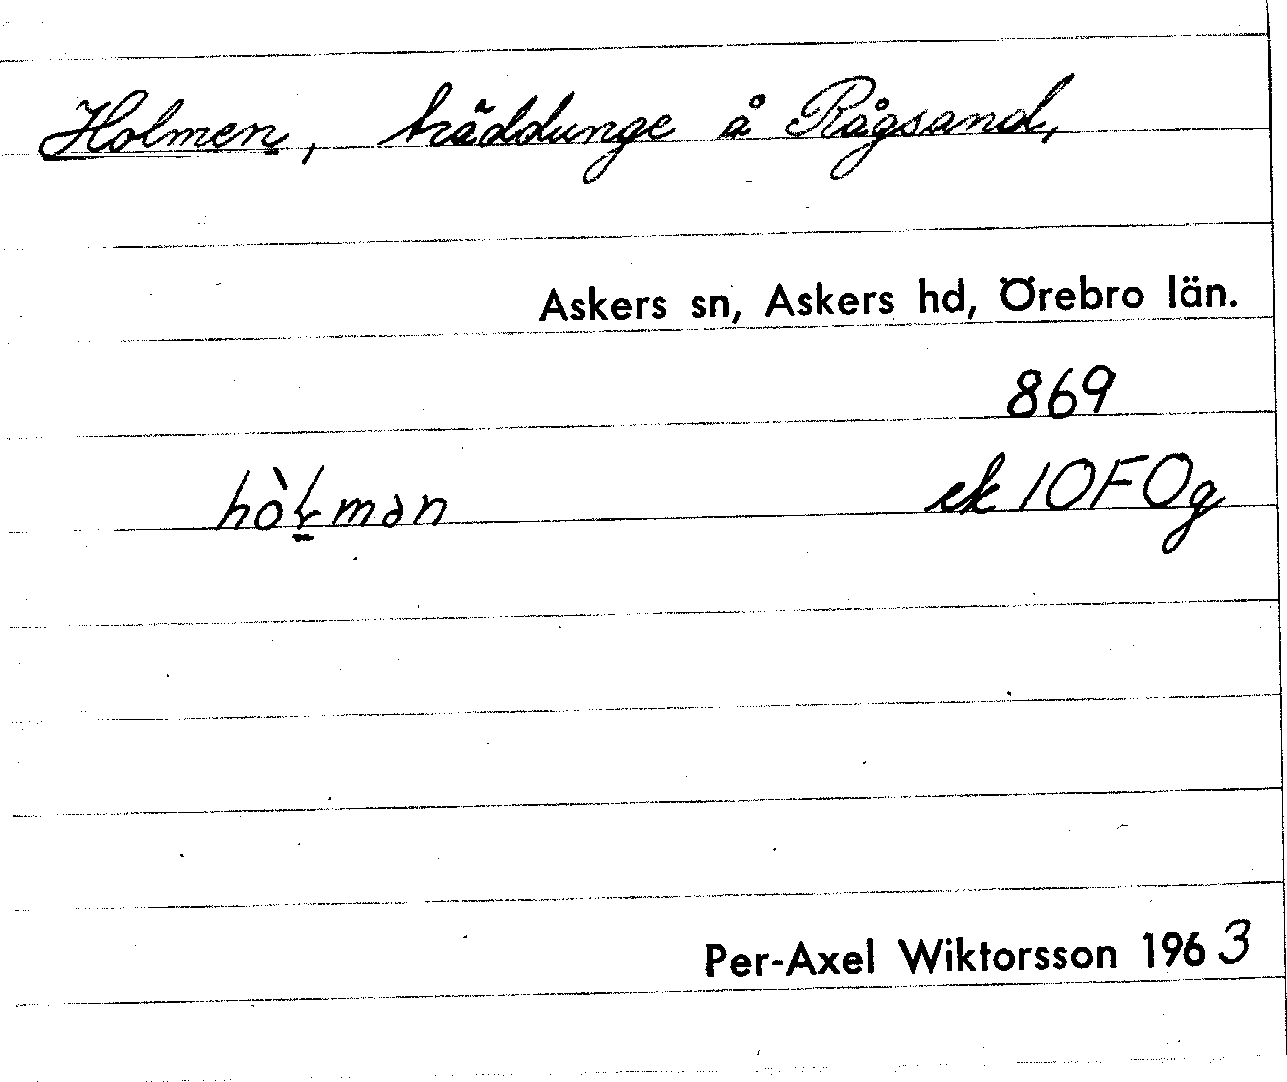 Holmen, träddunge å Rågsand,
Askers sn, Askers hd, Örebro län.
869
ek 10F0g
Per-Axel Wiktorsson 1963